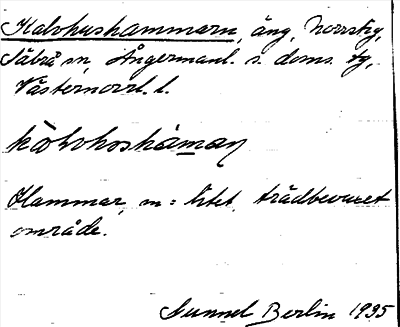 Kalvhushammarn, äng, Norrstig,
Säbrå sn, Ångermanl. s. doms. tg,
Västernorrl. l.
Hammar, m = litet, trädbevuxet
område.
Gunnel Berlin 1935